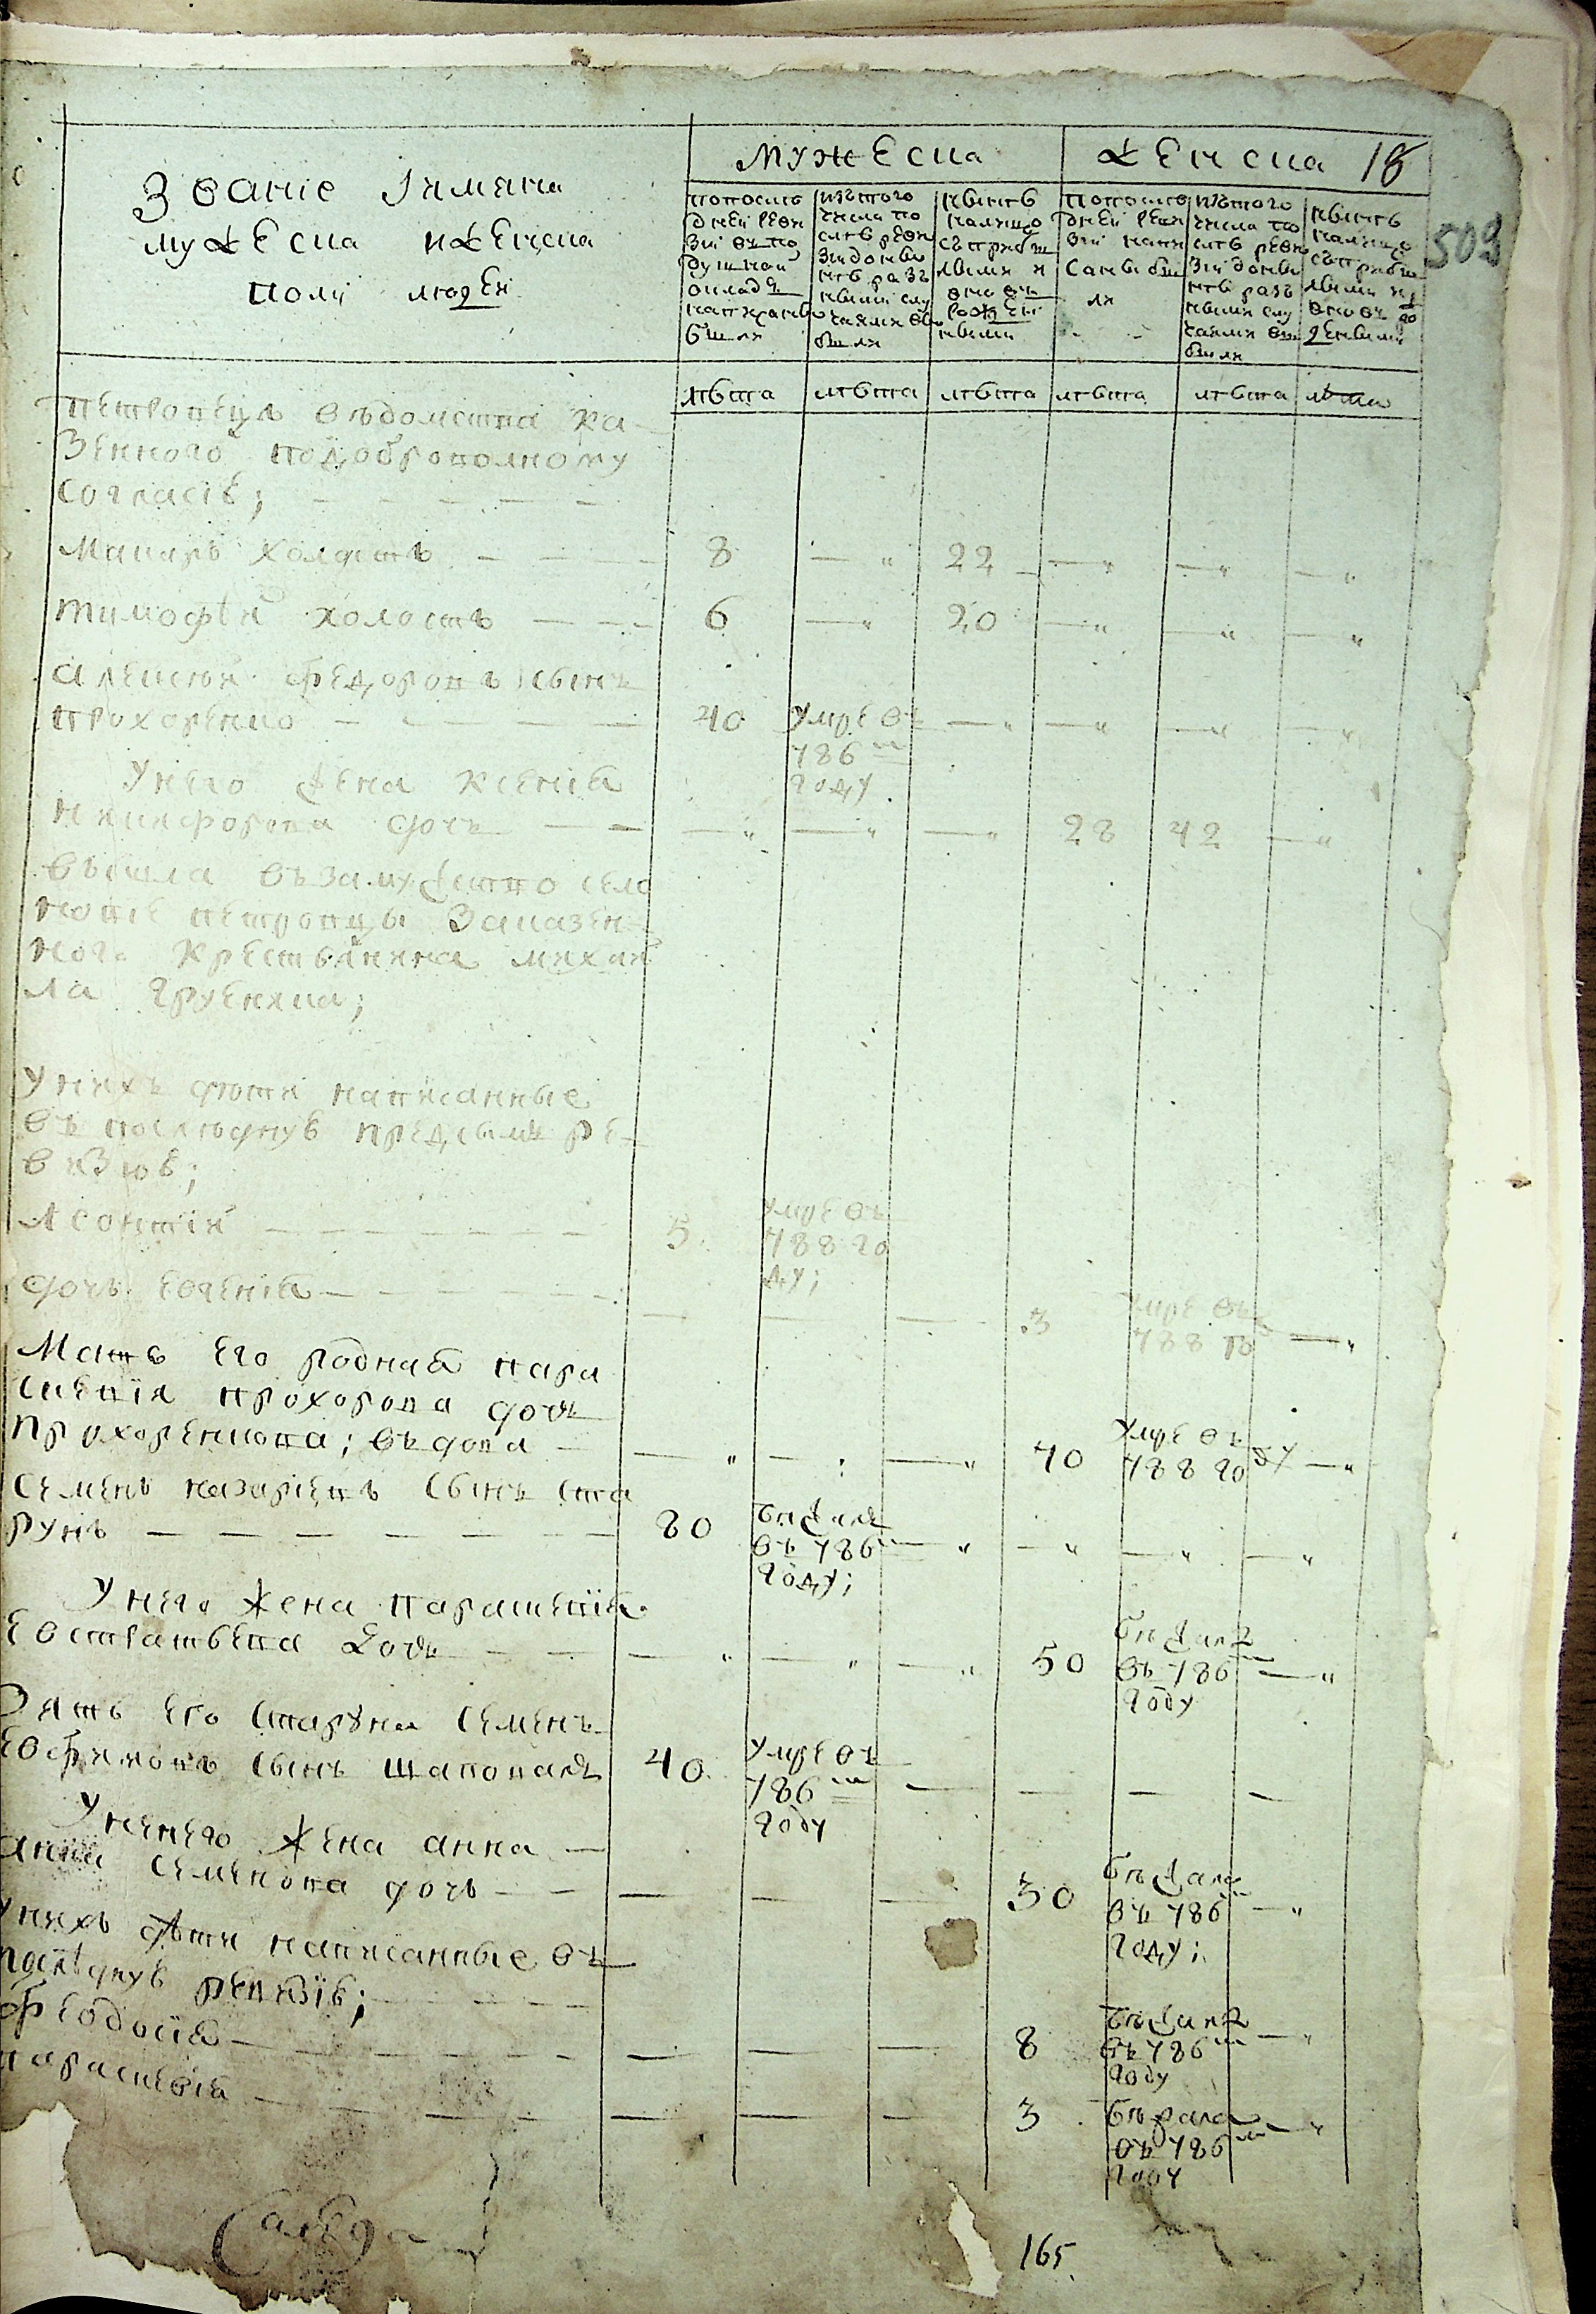 Званіе Iимяна
мужеска иженска
полу людей
мужеска
женска 18
509
попослѣ
дней реви
зіи въ по
душной
окладъ
написанно
были
изътого
числа по
слѣ реви
зіи доны
нѣ разъ
ными слу
чаями вы
были
нынѣ
налицо
съприбы
лыми и
вновь
рожден
ными
попослѣ
дней реви
зіи напи
санн бы
ли
изътого
числа по
слѣ реви
зіи доны
нѣ разъ
ными слу
чаями вы
были
нынѣ
налицо
съприбы
лыми и
лѣта лѣта лѣта лѣта лѣта лѣта
петровецъ вѣдомства ка
зенного подоброволному
согласіе;
Макаръ холостъ 8 22
тимофѣй холостъ 6 20
алексѣй федоровъ сынъ
прохоренко 40 умре въ
786 го
году
Унего жена ксенія
никифорова дочь 28 42
вышла възамужство села
петровцы заказен
ного крестьянина михай
ла
Унихъ дѣти написанные
въ послѣднуѣ предсымъ ре
визіѣ;
леонтій 5 умре въ
788 го
ду;
дочь евгенія 3 умре въ
788 го
Мать его родная пара
скевія прохорова дочь
прохоренкова; вѣдова 70 умре въ
788 году
семенъ назаріевъ сынъ ста
рунъ 80 бѣжалъ
въ 786
году;
Унего жена параскевія
евстратьева дочь 50 бѣжала
въ 786
году
Зять его старуна семенъ
евфимовъ сынъ шаповалъ 40 умре въ
786
году
Унего жена анна
анна семенова дочь 30 бѣжала
въ 786
году;
Унихъ дѣти написанные въ
послѣднуѣ ревизіѣ;
феодосія 8 бѣжала
въ 786
году
параскевія 3 бѣжала
въ 786
году
165